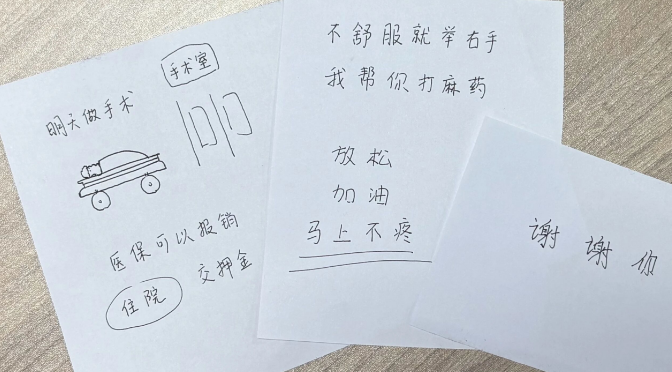 手术室
明天做手术
医保可以报销
住院 交押金
不舒服就举右手
我帮你打麻药
放松
加油
马上不疼
谢谢你